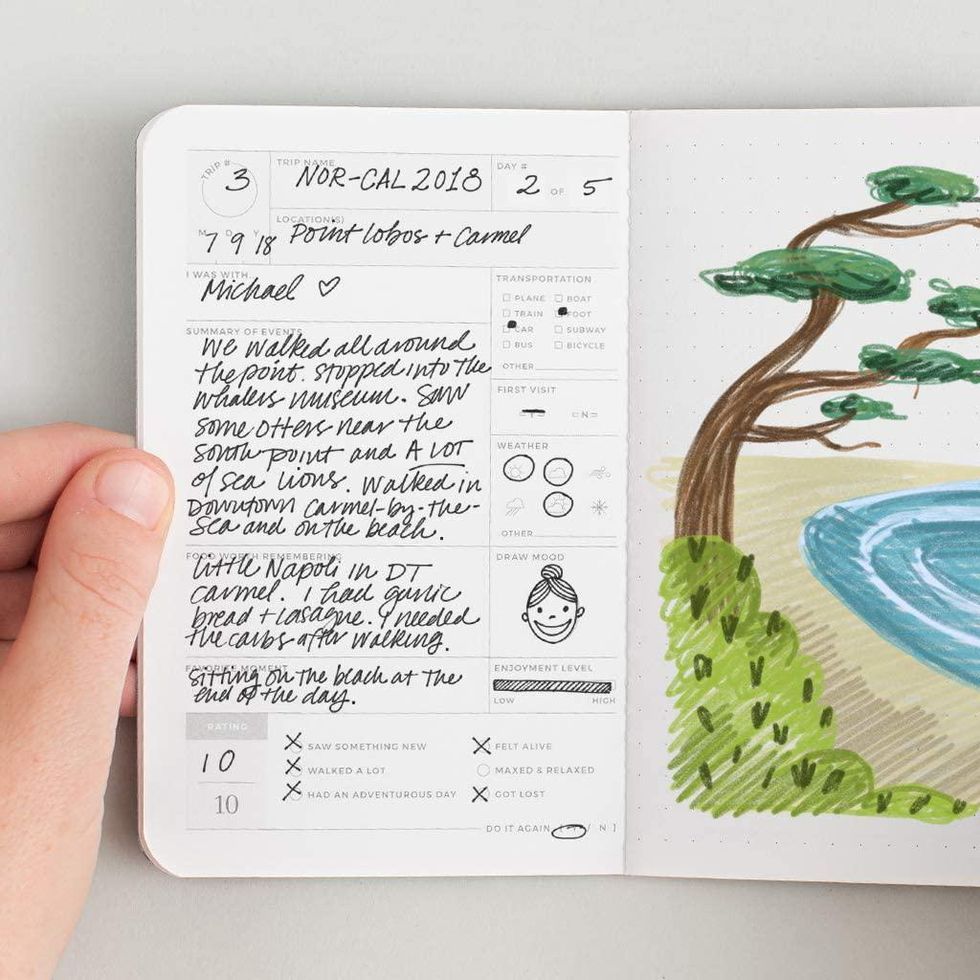 TRIP #
3
TRIP NAME
NOR-CAL 2018
DAY #
2 OF 5
M D Y
7 9 18
LOCATION(S)
Point Lobos + Carmel
I WAS WITH
Michael ♡
TRANSPORTATION
PLANE BOAT
TRAIN FOOT
CAR SUBWAY
BUS BICYCLE
OTHER
SUMMARY OF EVENTS
We walked all around
the point. Stopped into the
whalers museum. Saw
some otters near the
south point and A LOT
of sea lions. Walked in
Downtown Carmel-by-the-
Sea and on the beach.
FIRST VISIT
Y N
WEATHER
OTHER
FOOD WORTH REMEMBERING
Little Napoli in DT
Carmel. I had garlic
bread + lasagne. I needed
the carbs after walking.
DRAW MOOD
FAVORITE MOMENT
Sitting on the beach at the
end of the day.
ENJOYMENT LEVEL
LOW HIGH
RATING
10
10
SAW SOMETHING NEW
WALKED A LOT
HAD AN ADVENTUROUS DAY
FELT ALIVE
MAXED & RELAXED
GOT LOST
DO IT AGAIN [ Y / N ]